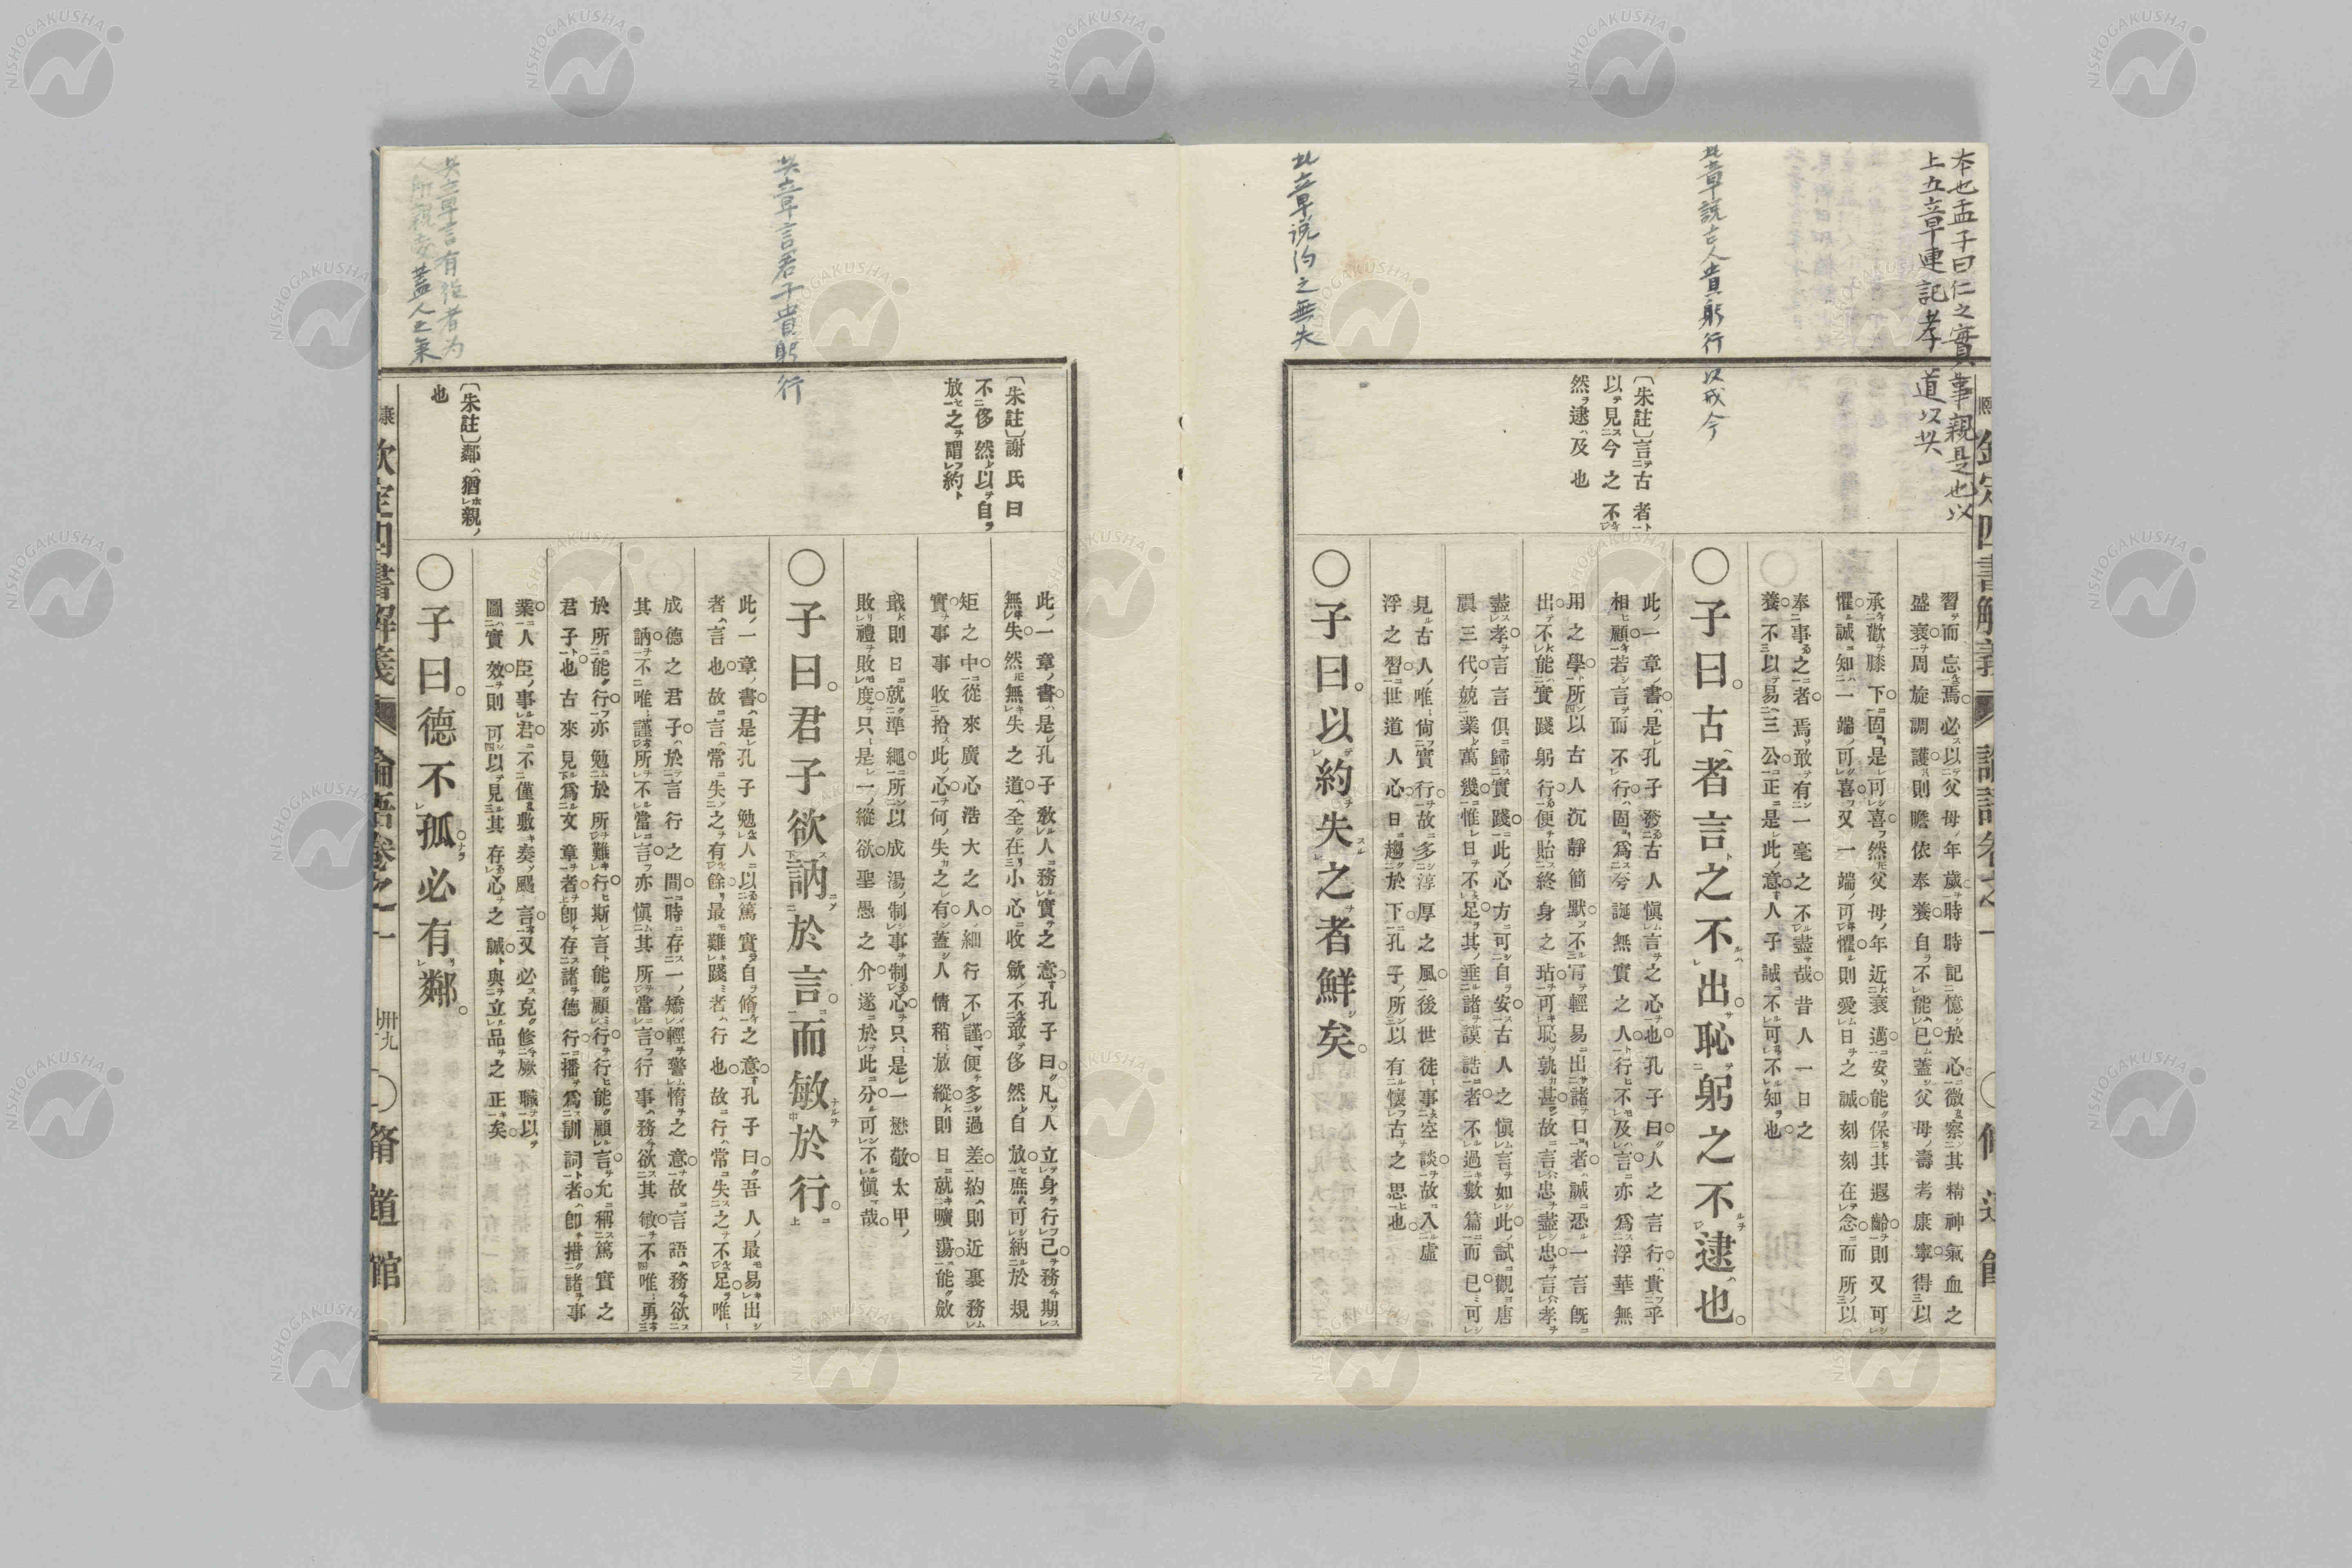 本也孟子曰仁之實事親是也以
上五章連記孝道以共
此章説古人貴躬行以戒今
此章说约之無失
〔朱註〕言古者
以見今之不
然逮及也
習而忘焉必以父母年歲時時記憶於心微察其精神氣血之
盛衰周旋調護則瞻依奉養自不能已蓋父母壽考康寧得以
承歡膝下固是可喜然父母年近衰邁安能保其遐齡則又可
懼誠知一端可喜又一端可懼則愛日之誠刻刻在念而所以
奉事之者焉敢有一毫之不盡哉昔人一日之
養不以易三公正是此意人子誠不可不知也
〇子曰。古者言之不出。恥躬之不逮也。
此一章書是孔子務古人愼言之心也孔子曰人之言行貴乎
相顧若言而不行固爲今誕無實之人行不及言亦爲浮華無
用之學所以古人沉靜簡默不肯輕易出諸口者誠恐一言旣
出不能實踐躬行便貽終身之玷可恥孰甚故言忠盡忠言孝
盡孝言言俱歸實踐此心方可自安古人之愼言如此試觀唐
虞三代兢業萬幾惟日不足其垂諸謨誥者不過數篇而已可
見古人唯尙實行故多淳厚之風後世徒事空談故入虛
浮之習世道人心日趨於下孔子所以有懷古之思也
〇子曰。以約失之者鮮矣。
欽定四書解義
論語卷之一
脩道館
共章言君子貴躬行
共章言有德者为
人所親故蓋人之氣
〔朱註〕謝氏曰
不侈然以自
放之謂約
〔朱註〕鄰猶親
也
此一章書是孔子敎人務實之意孔子曰凡人立身行己務期
無失然無失之道全在小心收斂不敢侈然自放庶可納於規
矩之中從來廣心浩大之人細行不謹便多過差約則近裏務
實事事收拾此心何失之有蓋人情稍放縱則日就曠蕩能斂
戢則日就準繩所以成湯制事制心只是一懋敬太甲
敗禮敗度只是一縱欲聖愚之介遂於此分可不愼哉
〇子曰。君子欲訥於言。而敏於行。
此一章書是孔子勉人以篤實自脩之意孔子曰吾人最易出
者言也故言常失之有餘最難踐者行也故行常失之不足唯
成德之君子於言行之間時存一矯輕警惰之意故言語務欲
其訥不唯謹所不當言亦愼其所當言行事務欲其敏不唯勇
於所能行亦勉於所難行斯言能顧行行能顧言允稱篤實之
君子也古來見爲文章者卽存諸德行播爲訓詞者卽措諸事
業人臣事君不僅敷奏颺言又必克修厥職以
圖實效則可以見其存心之誠與立品之正矣
〇子曰。德不孤。必有鄰。
欽定四書解義
論語卷之一
卅九
〇脩道館
NISHOGAKUSHA